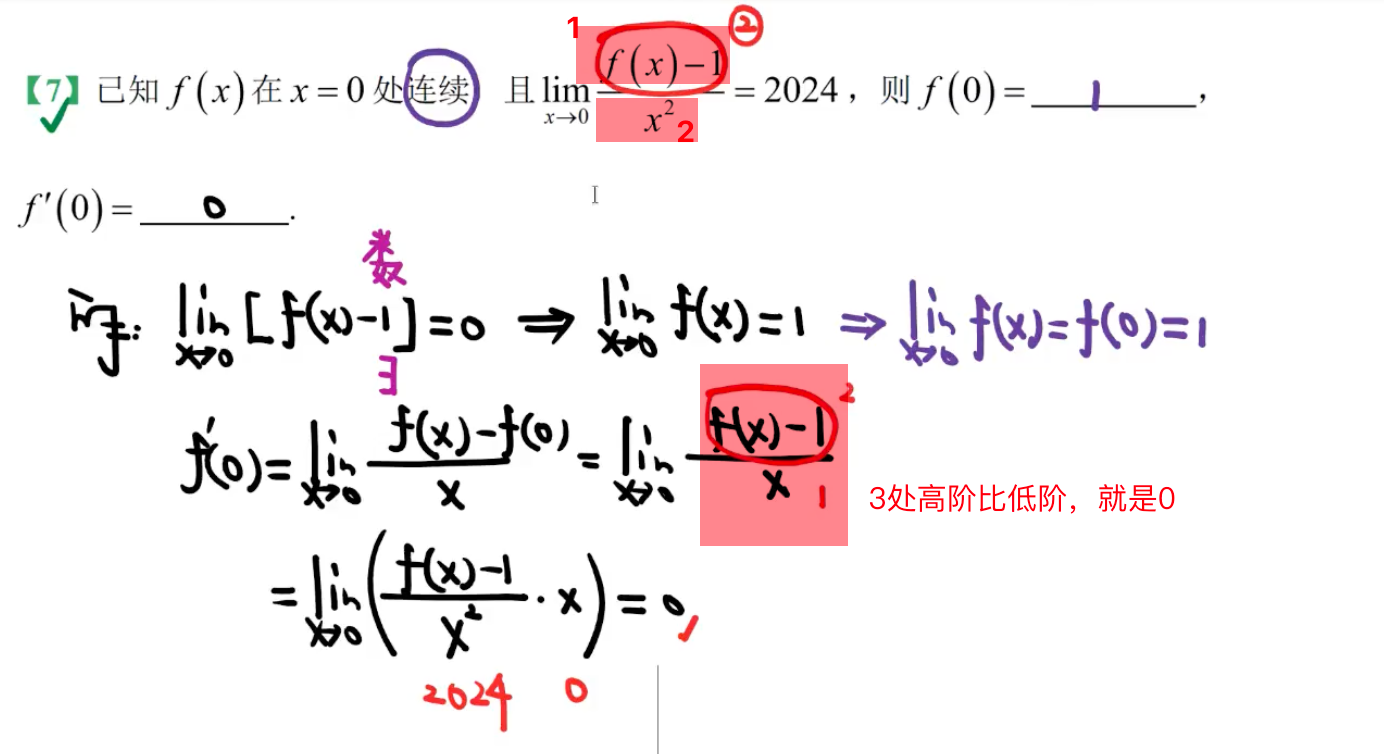 1 ②
【7】已知 f(x) 在 x = 0 处连续 且 lim x→0 (f(x)−1)/x² = 2024，则 f(0) = 1，
2
f′(0) = 0.
类
数
lim x→0 [f(x)-1] = 0 ⇒ lim x→0 f(x) = 1 ⇒ lim x→0 f(x) = f(0) = 1
∃
f′(0) = lim x→0 (f(x)-f(0))/x = lim x→0 (f(x)-1)/x
2
1
3处高阶比低阶，就是0
= lim x→0 ((f(x)-1)/x² · x) = 0
2024 0